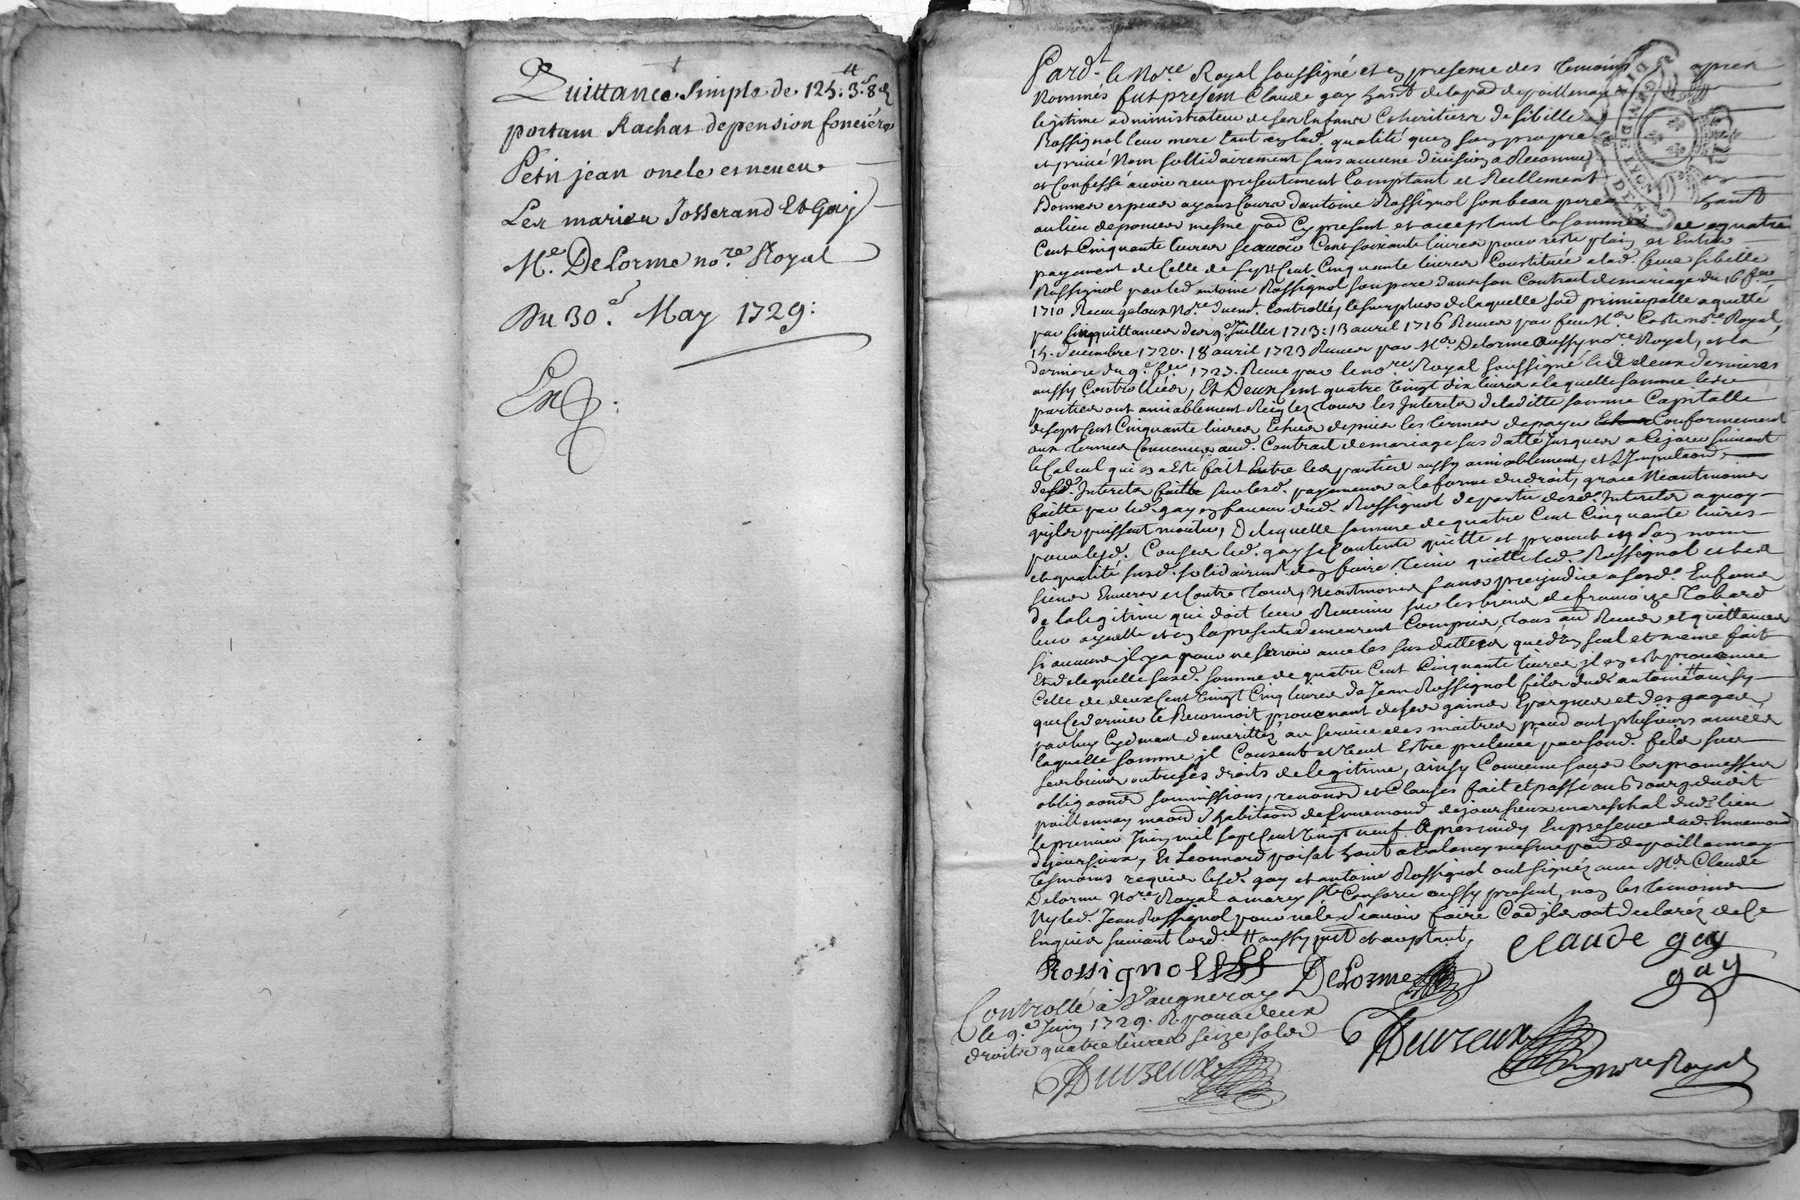 Quittance simple de 125.tt 3.s 8.d
portant Rachat de pension fonciere
Petit jean oncle et neveu
Les mariez Josserand Et Gay
Me. DeLorme nore. Royal
Du 30e. May 1729:
En
Pardt. le Nore Royal soussigné et en presence des temoins apres
Nommés fut present Claude gay hant de la pad de poillenay
legitime administrateur de ses Enfans Coheritiers de Sibille
Rossignol leur mere tant en lad. qualité qu'en son propre
et privé Nom sollidairement sans aucune division a Reconnu
et Confessé avoir receu presentement Comptant et Reellement en
Bonnes especes ayans Cours d'antoine Rossignol son beau pere hant
au lieu de mesme pad Cy present et acceptant la somme de quatre
Cent Cinquante livres scavoir Cent soixante livres pour reste plein et Entier
payement de Celle de sept Cent Cinquante livres Constituée a lad. feue sibille
Rossignol par led antoine Rossignol son pere dans son Contrat de mariage du 16
1710. Receu Nore. Controllé, le surplus de laquelle sad principalle a quitté
par Cinq quittances des 9e Juillet 1713: 13 avril 1716 Receues par feu Me. Coste nore Royal,
15. decembre 1720. 18 avril 1723 Receues par Me. Delorme aussy nore. Royal, et la
derniere du 9e. 1727. Receue par le nore Royal soussigné les deux dernieres
aussy Controllées, Et Deux Cent quatre Vingt dix livres a laquelle somme lesd.
parties ont amiablement Reiglez tous les Interets de laditte somme Capitalle
de sept Cent Cinquante livres Echus depuis les termes de payer Conformement
aux termes Convenus aud. Contrat de mariage sus datté Jusques a ce jour suivant
le Calcul qui en a Esté fait Entre les parties aussy amiablement, et l'Imputaon
desd. Interets faitte sur lesd. payemens a la forme du droit, grace Neantmoins
faitte par led. gay en faveur dud. Rossignol de partie desd. Interets a quoy
qu'ils puissent monter, De laquelle somme de quatre Cent Cinquante livres
led. gay se Contente quitte et promet en son nom
et qualité susd. solidairemt. d'en faire tenir quitte led. Rossignol et les
siens Envers et Contre tous, Neantmoins sans prejudice a sesd. Enfans
de la legitime qui doit leur Revenir sur les biens de francoize Tabard
leur ayeulle et en la presente demeurent Comprises tous au Receus et quittances
si aucuns il y a pour ne servir avec les sus dattées que d'un seul et meme fait
Et de laquelle susd. somme de quatre Cent Cinquante livres il en est provenu
Celle de deux Cent Vingt Cinq livres de Jean Rossignol fils dud. antoine tt ainsy
que Ce dernier le Reconnoit, provenant de ses gains Epargnes et des gages
par luy Cydevant merittés au service des maitres pendant plusieurs années
laquelle somme il Consent et veut Estre prelevée par sond. fils sur
ses biens outre ses droits de legitime, ainsy Convenu sous les promesses
obligaons soumissions, renonons et Clauses fait et passé au Bourg dudit
poillennay maaon d'habitaon de Ennemond dejoursieux mareschal dud. lieu
le premier Juin mil sept Cent Vingt neuf apres midy En presence dud. Ennemond
dejoursieux, Et Leonnard poisat hant a mesme pad de poillennay
tesmoins requis lesd. gay et antoine Rossignol ont signéz avec Me. Claude
Delorme Nore. Royal a marcy ste Consorce aussy present, non les temoins
Ny led. Jean Rossignol pour ne le scavoir faire Co ils ont declarés de Ce
Enquis suivant lord.ce tt aussy pnt et acceptant,
Rossignol
DeLorme
claude gay
gay
Controllé à Vaugneray
le 9.e Juin 1729. R. pour deux
droits quatre livres seize solds
Duvreux
Duvreux
nore Royal